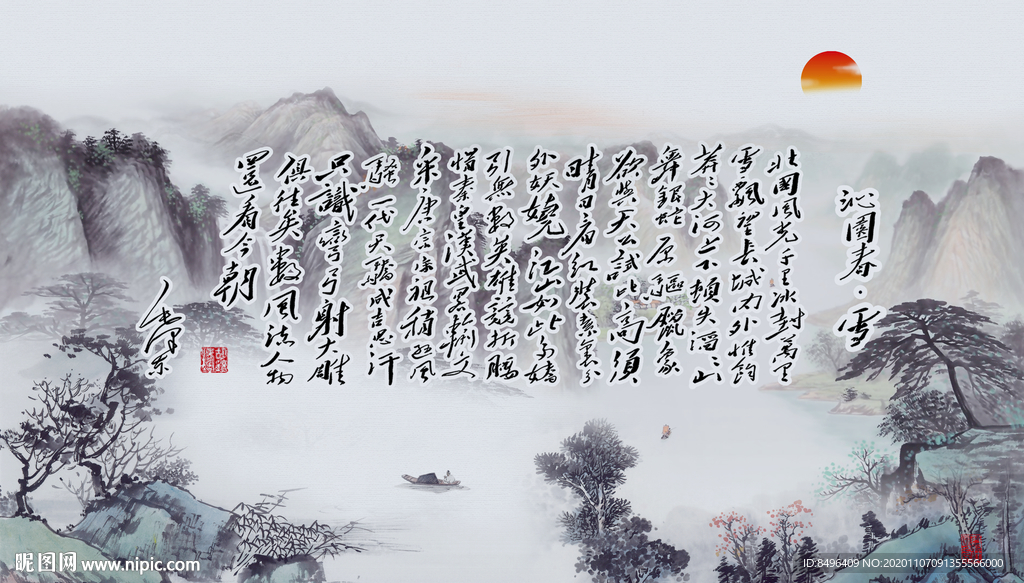 沁園春·雪
北國風光千里冰封萬里
雪飄望長城内外惟餘
莽々大河上下頓失滔々山
舞銀蛇原驅臘象
欲與天公試比高須
晴日看紅裝素裹分
外妖嬈江山如此多嬌
引無數英雄競折腰
惜秦皇漢武略輸文
采唐宗宋祖稍遜風
騷一代天驕成吉思汗
只識彎弓射大雕
俱往矣數風流人物
還看今朝
毛澤東
昵图网 www.nipic.com
ID:8496409 NO:20201107091355566000